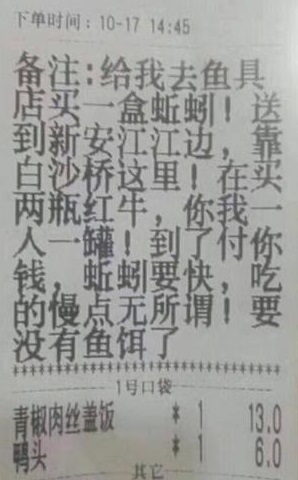 下单时间: 10-17 14:45
备注:给我去鱼具
店买一盒蚯蚓！送
到新安江江边，靠
白沙桥这里！在买
两瓶红牛，你我一
人一罐！到了付你
钱，蚯蚓要快，吃
的慢点无所谓！要
没有鱼饵了
1号口袋
青椒肉丝盖饭 * 1 13.0
鸭头 * 1 6.0
其它